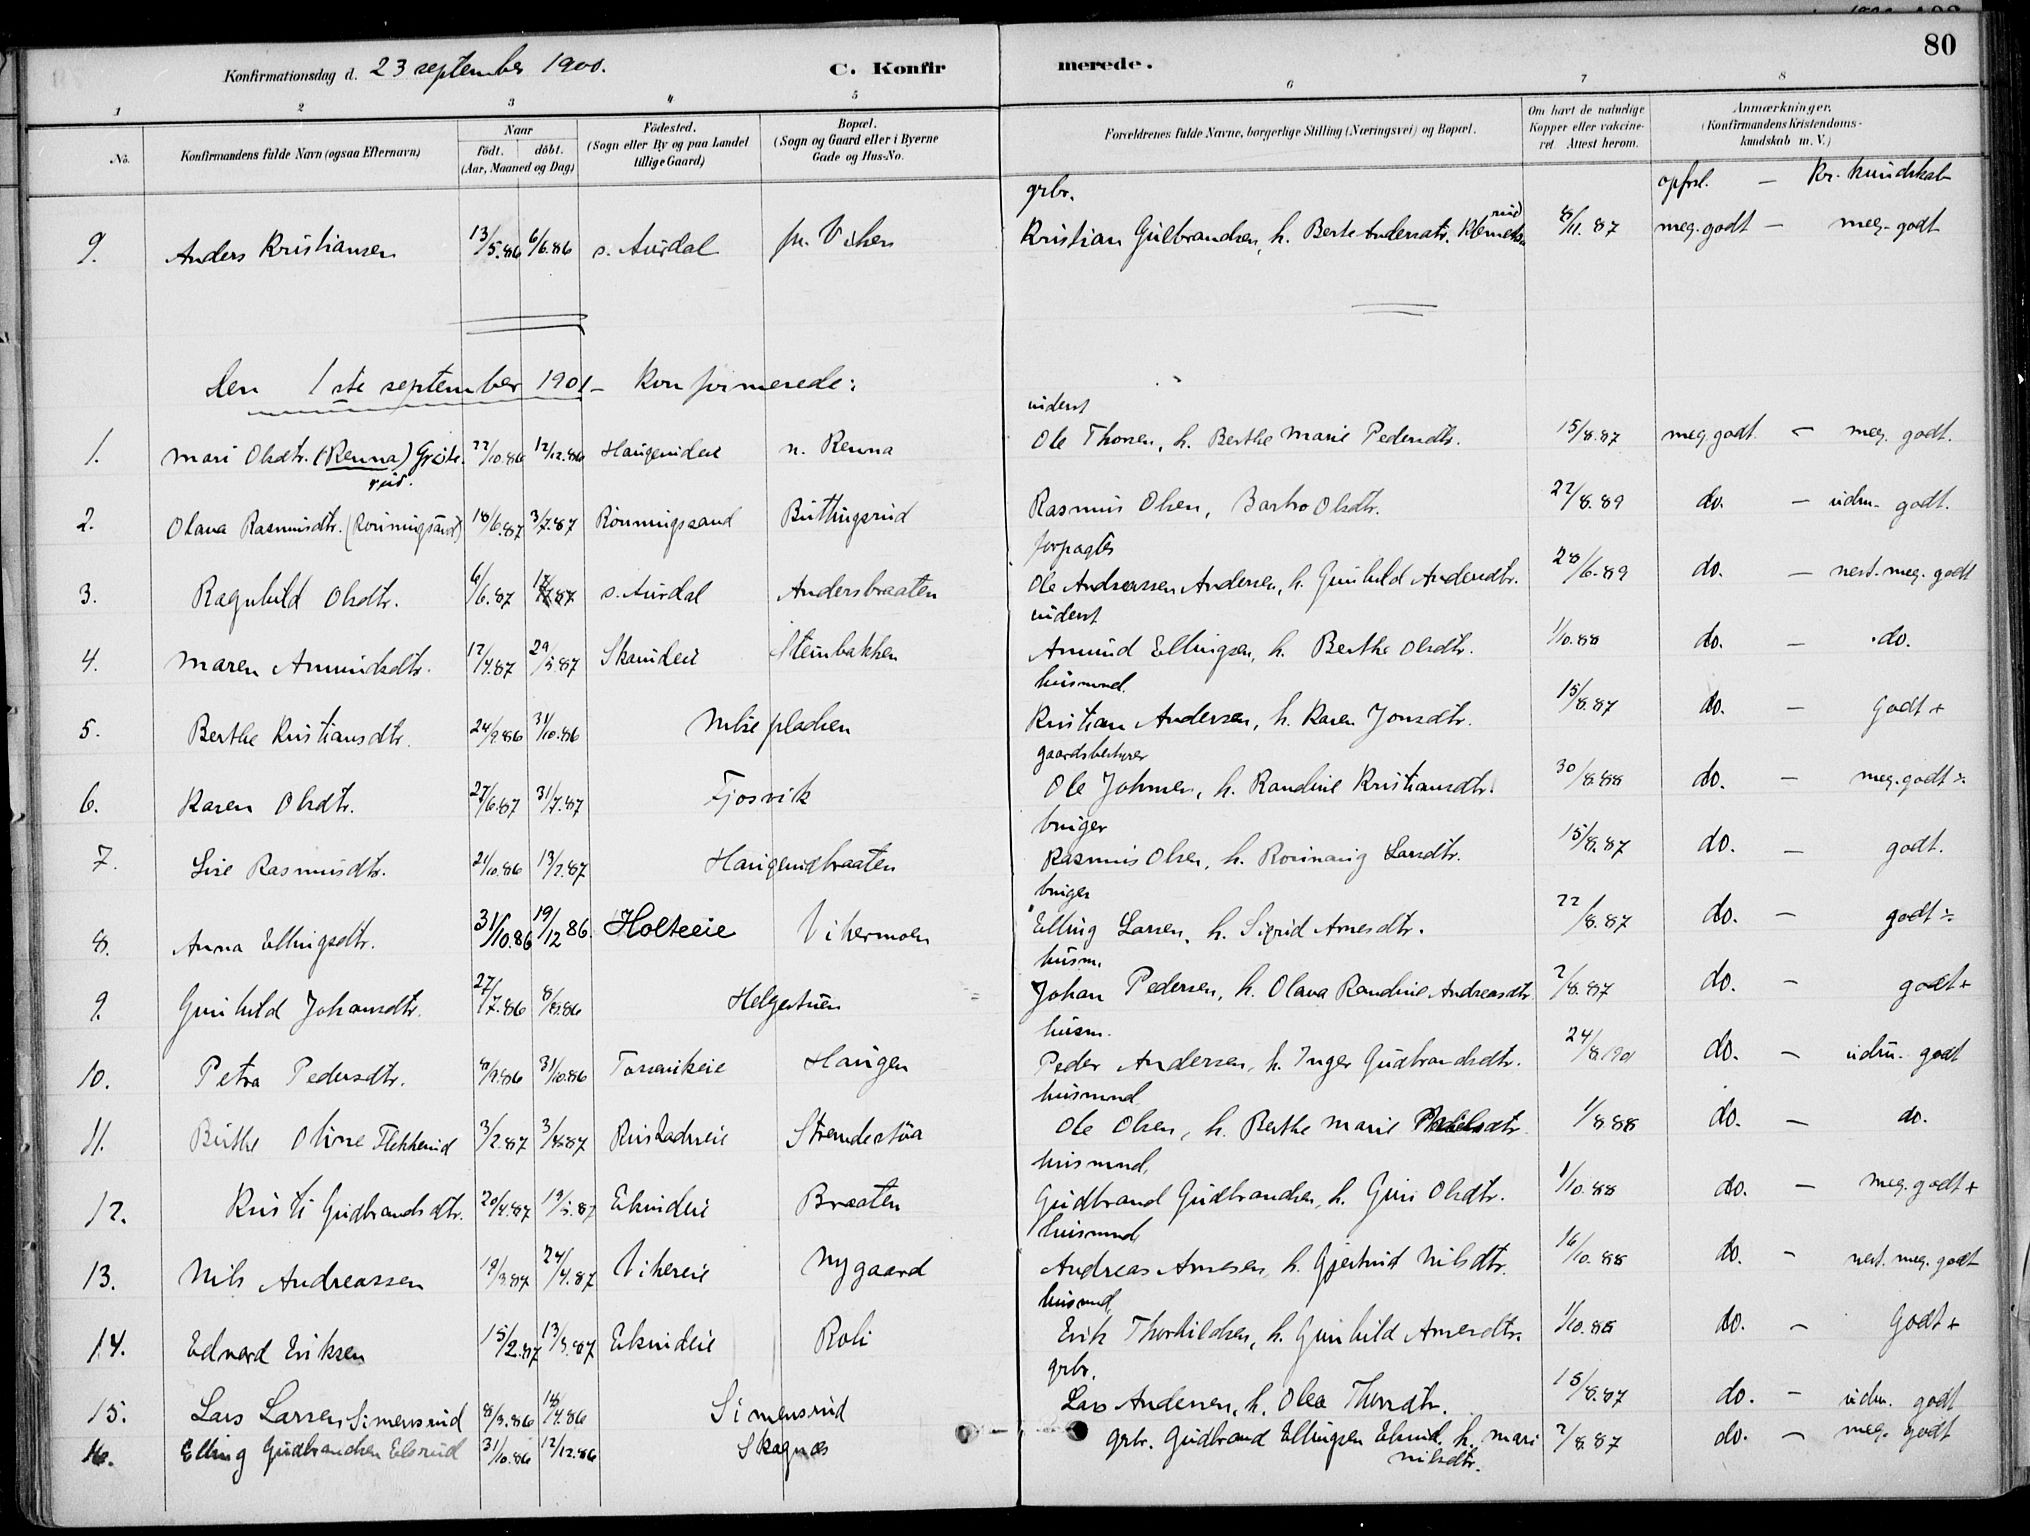 80
Konfirmationsdag d. 23 september 1900. C. Konfir merede.
1 2 3 4 5 6 7 8
No. Konfirmandens fulde Navn (ogsaa Efternavn) Naar födt. döbt. (Aar, Maaned og Dag) Födested. (Sogn eller By og paa Landet tillige Gaard) Bopæl. (Sogn og Gaard eller i Byerne Gade og Hus-No. Forældrenes fulde Navne, borgerlige Stilling (Næringsvei) og Bopæl. Om havt de naturlige Kopper eller vakcineret. Attest herom. Anmærkninger. (Konfirmandens Kristendomskundskab m. V.)
grbr. opfrsl. — Kr. kundskab
9. Anders Kristiansen 13/5.86 6/6.86 s. Aurdal Viken Kristian Gulbrandsen, h. Berte Andersdtr. 8/11.87 meg. godt — meg. godt
den 1ste september 1901 - konfirmerede:
inderst
1. Mari Olsdtr. (Renna) 22/10.86 12/12.86 Haugerudeie n. Renna Ole Thoresen, h. Berthe Marie Pedersdtr. 15/8.87 meg. godt — meg. godt.
2. Olava Rasmusdtr. (Rönningsand) 18/6.87 3/7.87 Rönningsand Buttingsrud Rasmus Olsen, Barbro Olsdtr. 22/8.89 do. — udm. godt.
forpagter
3. Ragnhild Olsdtr. 6/6.87 17/7.87 s. Aurdal Andersbraaten Ole Andreassen Andersen, h. Gunhild Andersdtr. 28/6.89 do. — nest. meg. godt
inderst
4. Maren Amundsdtr. 17/4.87 29/5.87 Skarudeie Steinbakken Amund Ellingsen, h. Berthe Olsdtr. 1/10.88 do. — do.
husmnd.
5. Berthe Kristiansdtr. 24/9.86 31/10.86 Kristian Andersen, h. Karen Jonsdtr. 15/8.87 do. — Godt +
gaardsbestyrer
6. Karen Olsdtr. 27/6.87 31/7.87 Fjosvik Ole Johnsen, h. Randine Kristiansdtr. 30/8.88 do. — meg. godt ÷
bruger
7. Lise Rasmusdtr. 21/10.86 13/2.87 Haugerudbraaten Rasmus Olsen, h. Rönnaug Larsdtr. 15/8.87 do. — godt.
bruger
8. Anna Ellingsdtr. 31/10.86 19/12 86. Holteeie Vikermoen Elling Larsen, h. Sigrid Arnesdtr. 22/8.87 do. — godt ÷
husm.
9. Gunhild Johansdtr. 27/7.86 8/8.86 Helgestuen Johan Pedersen, h. Olava Randine Andreasdtr. 2/8.87 do. — godt +
husm.
10. Petra Pedersdtr. 8/9.86 31/10.86 Haugen Peder Andersen, h. Inger Gudbrandsdtr. 24/8.1901 do. — udm. godt
husmnd
11. Birthe Oline Flikkerud 3/2.87 3/4.87 Strandestöa Ole Olsen, h. Berthe Marie 1/8.88 do. — do.
husmnd,
12. Kristi Gudbrandsdtr. 20/4.87 19/5.87 Elsrudeie Braaten Gudbrand Gudbrandsen, h. Guri Olsdtr. 1/10.88 do. — meg. godt +
husmnd,
13. Nils Andreassen 19/3.87 24/4.87 Vikereie Nygaard Andreas Arnesen, h. Gjertrud Nilsdtr. 16/10.88 do. — nest. meg. godt
husmnd,
14. Edvard Eriksen 15/2.87 13/3.87 Elsrudeie Roli Erik Thorkildsen, h. Gunhild Arnesdtr. 1/10.88 do. — Godt +
grbr.
15. Lars Larsen Simensrud 8/3.86 18/4.86 Simensrud Lars Andersen, h. Olea Thorsdtr. 15/8.87 do. — udm. godt
16. Elling Gudbrandsen Elsrud 31/10.86 12/12.86 Skagnæs grbr. Gudbrand Ellingsen Elsrud, h. Mari 2/8.87 do. — meg. godt
Nilsdtr.